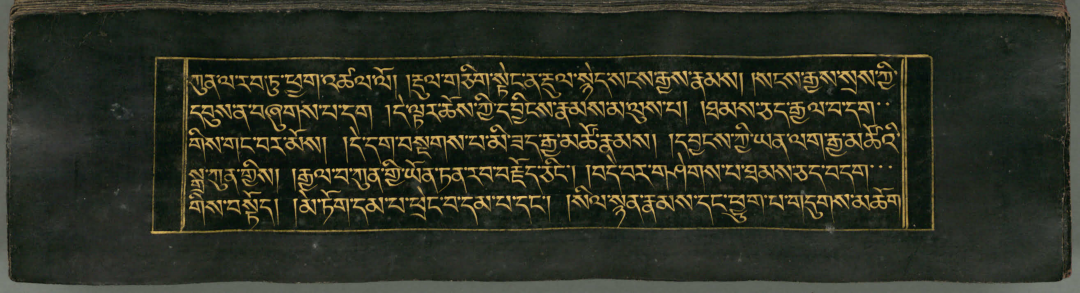 ཀུན་ལ་རབ་ཏུ་ཕྱག་འཚལ་ལོ། །རྡུལ་གཅིག་སྟེང་ན་རྡུལ་སྙེད་སངས་རྒྱས་རྣམས། །སངས་རྒྱས་སྲས་ཀྱི་
དབུས་ན་བཞུགས་པ་དག །དེ་ལྟར་ཆོས་ཀྱི་དབྱིངས་རྣམས་མ་ལུས་པ། །ཐམས་ཅད་རྒྱལ་བ་དག་་
གིས་གང་བར་མོས། །དེ་དག་བསྔགས་པ་མི་ཟད་རྒྱ་མཚོ་རྣམས། །དབྱངས་ཀྱི་ཡན་ལག་རྒྱ་མཚོའི་
སྒྲ་ཀུན་གྱིས། །རྒྱལ་བ་ཀུན་གྱི་ཡོན་ཏན་རབ་བརྗོད་ཅིང་། །བདེ་བར་གཤེགས་པ་ཐམས་ཅད་བདག་་་
གིས་བསྟོད། །མེ་ཏོག་དམ་པ་ཕྲེང་བ་དམ་པ་དང་། །སིལ་སྙན་རྣམས་དང་བྱུག་པ་གདུགས་མཆོག